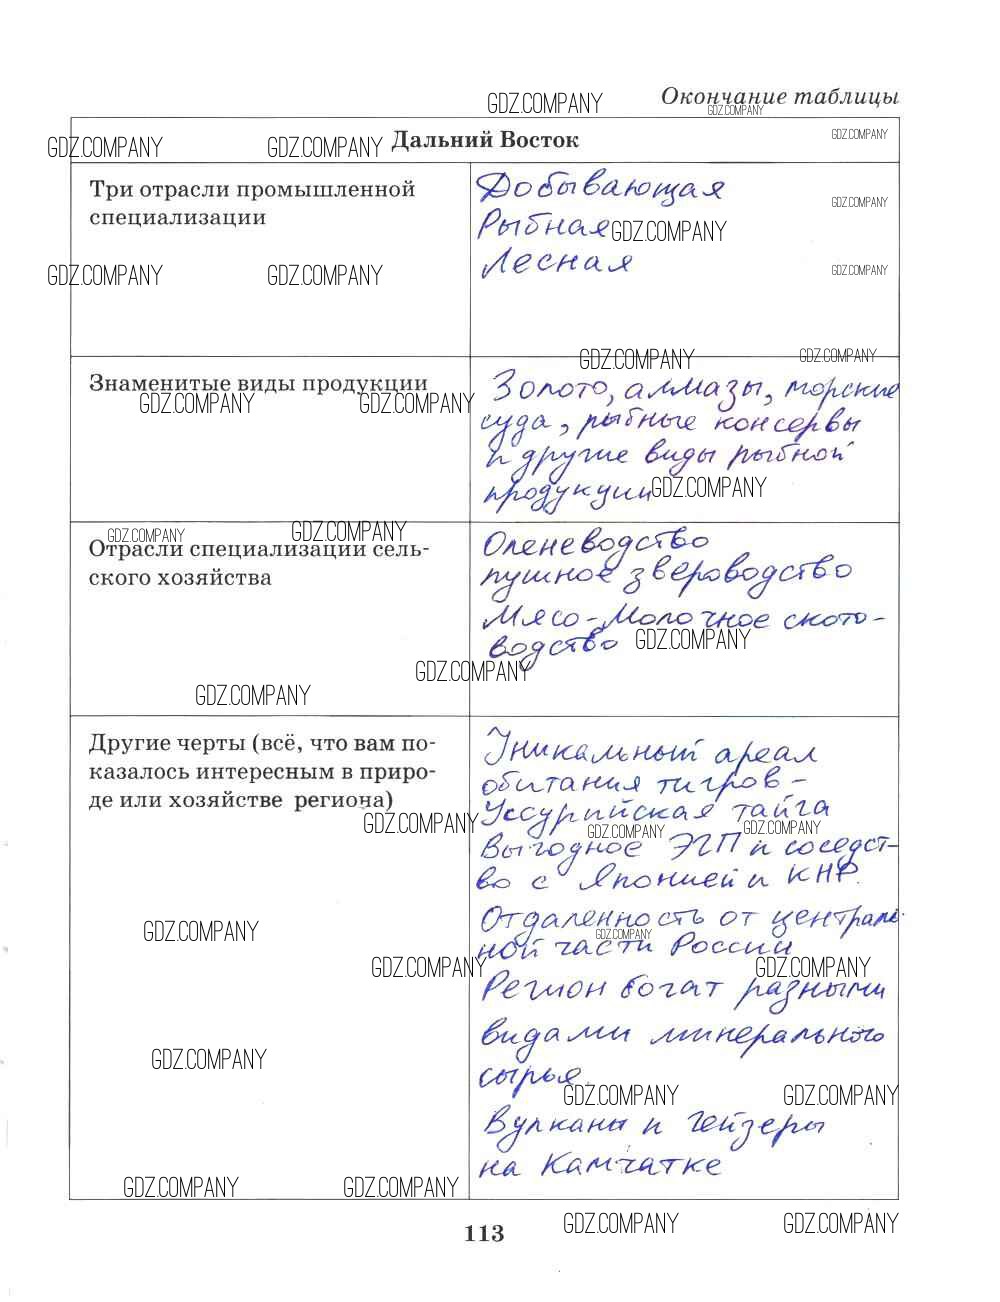 Окончание таблицы
Дальний Восток
Три отрасли промышленной
специализации
Добывающая
Рыбная
Лесная
Знаменитые виды продукции
Золото, алмазы, морские
суда, рыбные консервы
и другие виды рыбной
продукции
Отрасли специализации сель-
ского хозяйства
Оленеводство
пушное звероводство
Мясо-молочное ското-
водство
Другие черты (всё, что вам по-
казалось интересным в приро-
де или хозяйстве региона)
Уникальный ареал
обитания тигров –
Уссурийская тайга
Выгодное ЭГП и соседст-
во с Японией и КНР.
Отдаленность от централь-
ной части России
Регион богат разными
видами минерального
сырья
Вулканы и гейзеры
на Камчатке
113
GDZ.COMPANY